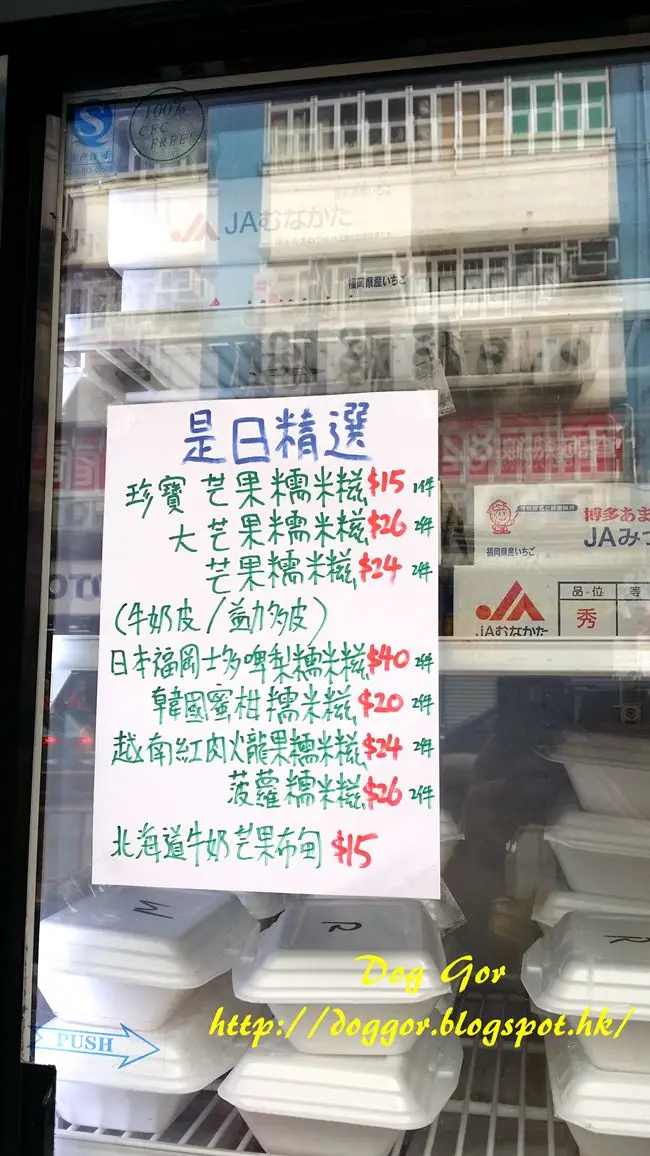 100%
CFC
FREE!
JAむなかた
福岡県産いちご
是日精選
珍寶 芒果糯米糍 $15 1件
大芒果糯米糍 $26 2件
芒果糯米糍 $24 2件
(牛奶皮/益力多皮)
日本福岡士多啤梨糯米糍 $40 2件
韓國蜜柑糯米糍 $20 2件
越南紅肉火龍果糯米糍 $24 2件
菠蘿糯米糍 $26 2件
北海道牛奶芒果布甸 $15
博多あま
JAみっ
福岡県産いちご
JAむなかた
品・位 等
秀
M
R
R
PUSH
Dog Gor
http://doggor.blogspot.hk/